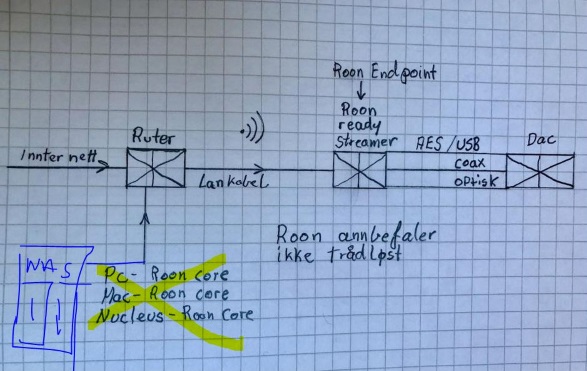 Roon Endpoint
Roon
ready
Streamer
AES/USB
Dac
Ruter
Innter nett
coax
Lankabel
optisk
Roon annbefaler
ikke trådløst
NAS
Pc- Roon core
Mac- Roon core
Nucleus- Roon Core